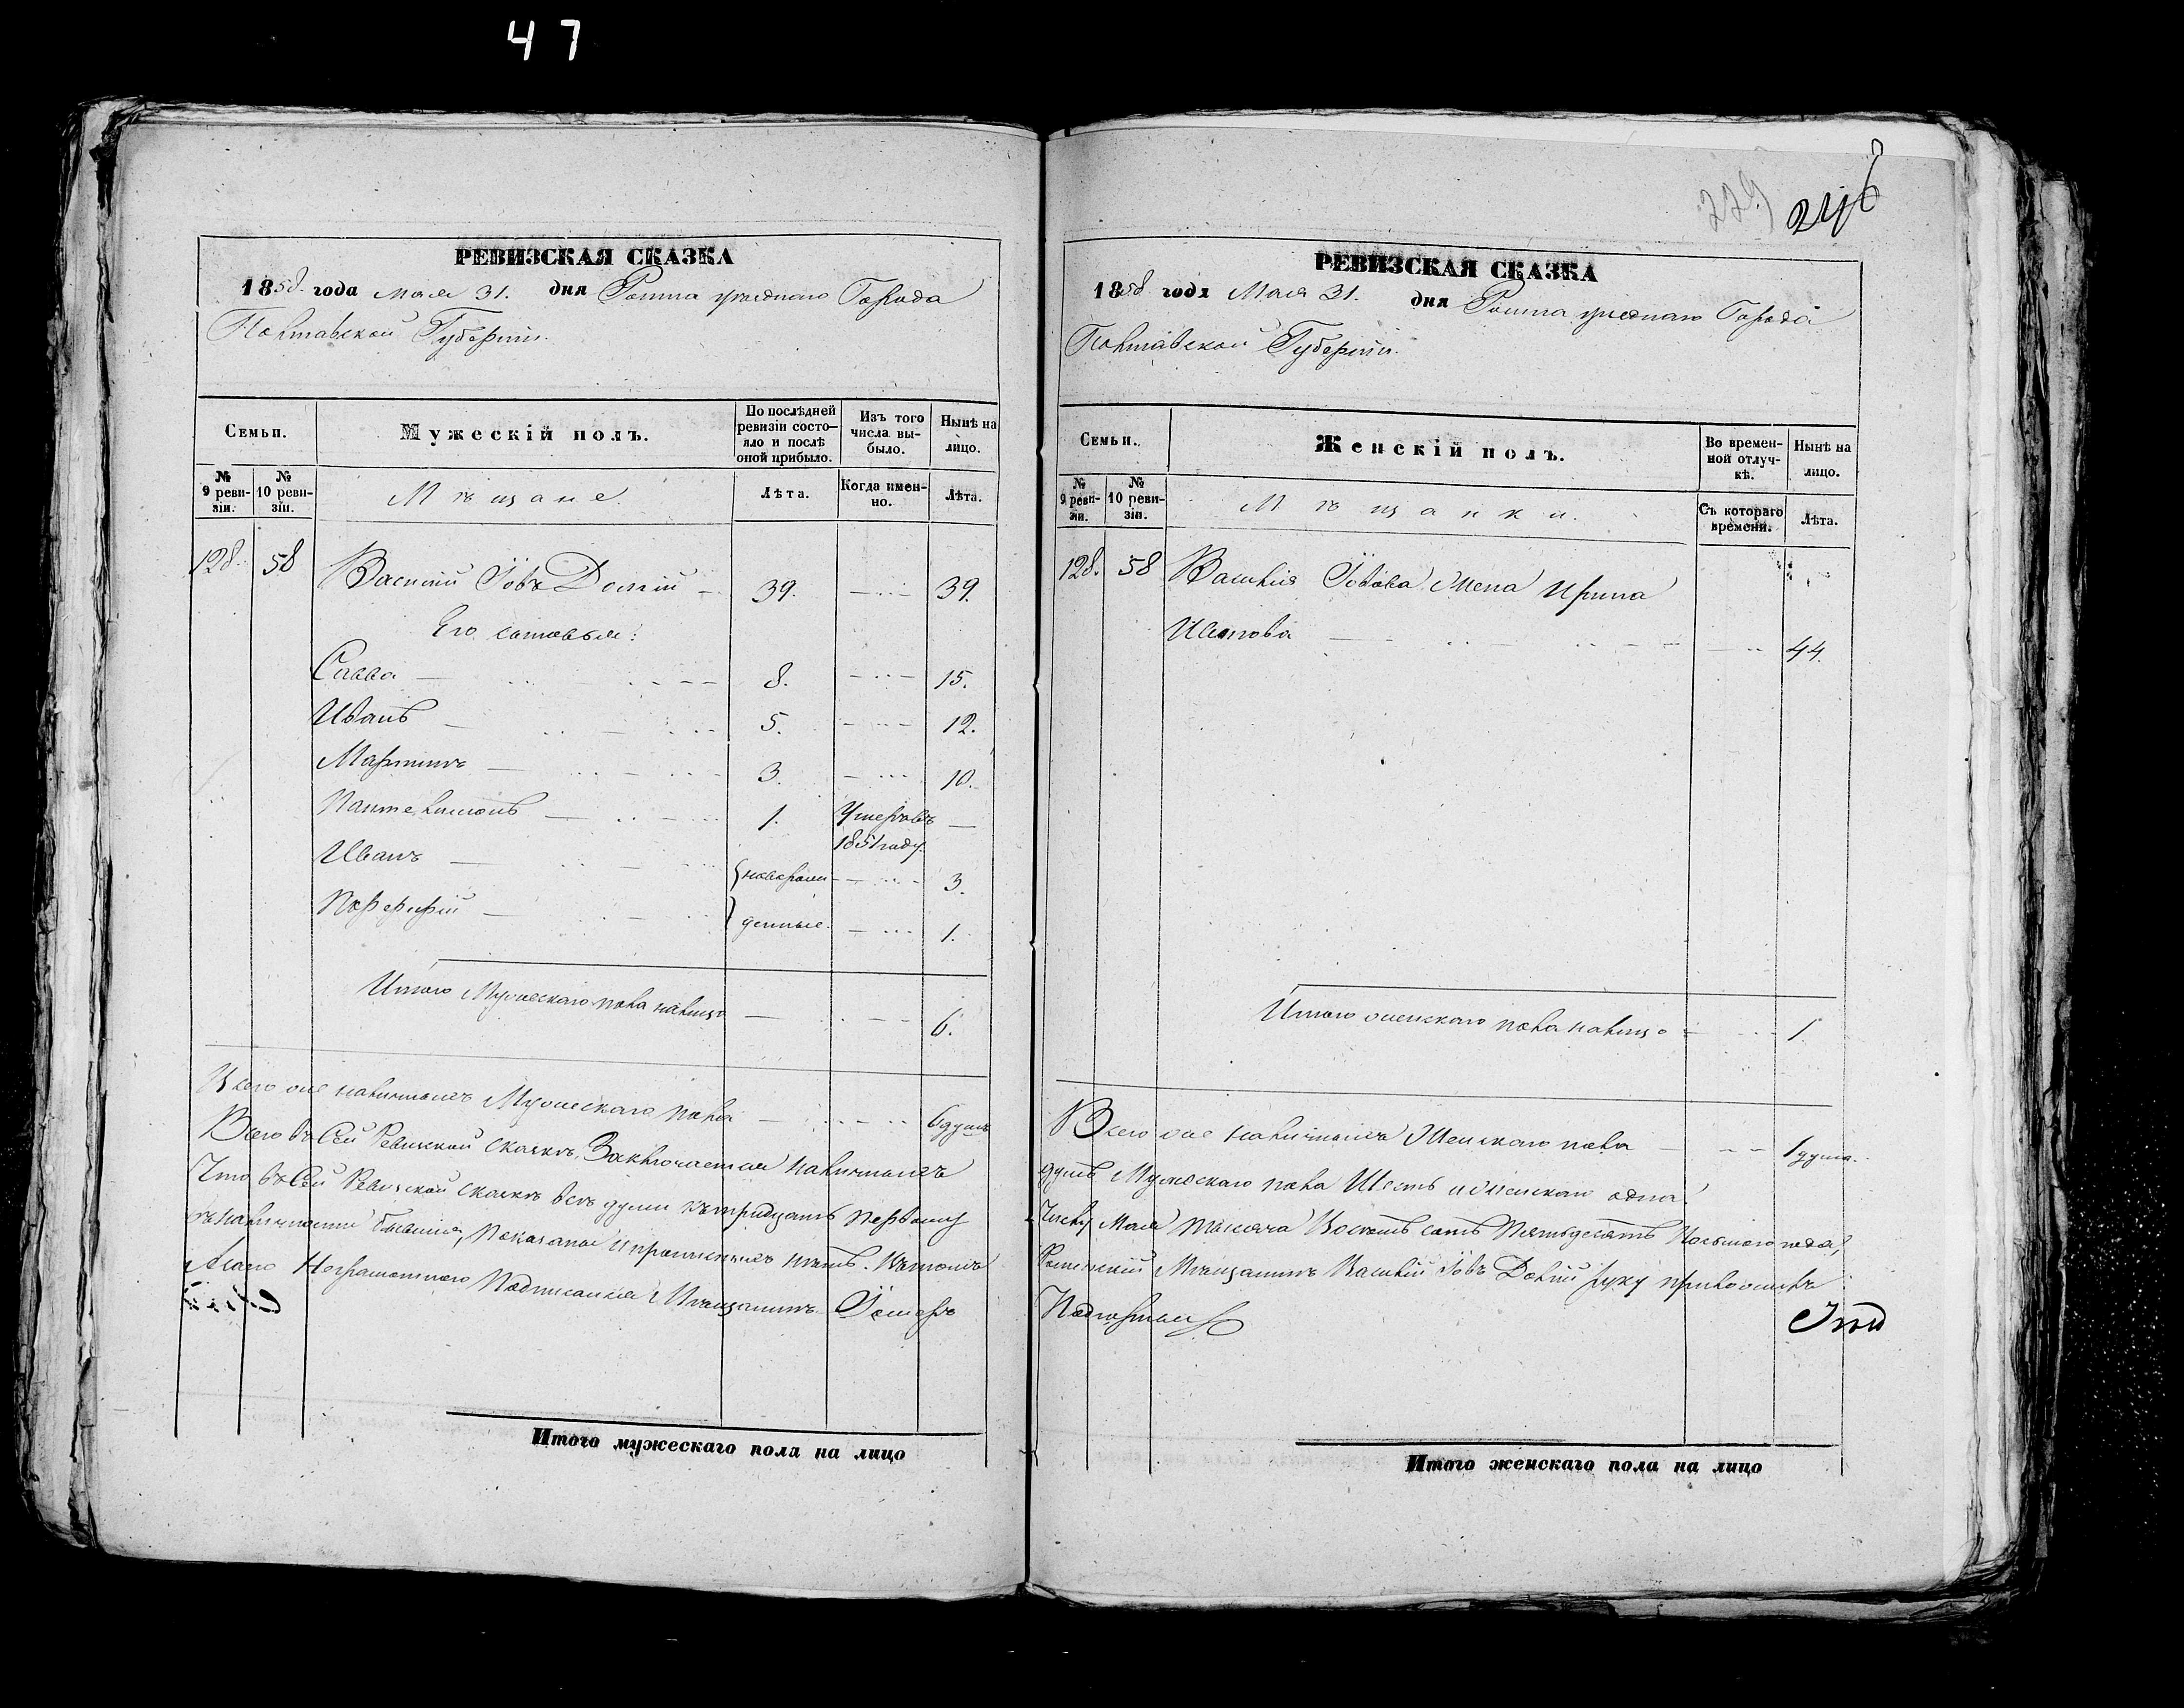 47
РЕВИЗСКАЯ СКАЗКА
1858 года Мая 31. дня Ромна уѣзднаго Города
Полтавской Губерніи.
Семьи.
Мужескій полъ.
По послѣдней ревизіи состо-
яло и послѣ
оной прибыло.
Изъ того
числа вы-
было.
Нынѣ на
лицо.
№
9 реви-
зіи.
№
10 реви-
зіи.
Мѣщане.
Лѣта.
Когда имен-
но.
Лѣта.
128. 58 Василій Іовъ Долгій 39. 39.
Его сыновья:
Савва 8. 15.
Иванъ 5. 12.
Мартинъ 3. 10.
Пантелимонъ 1. Умеръ въ
1851 году.
Иванъ новорож- 3.
Порфирій денные. 1.
Итого Мужескаго пола налицо 6.
Всего же наличныхъ Мужескаго пола 6 душъ
Всего въ Сей Ревизской Сказкѣ, Заключается наличныхъ
Что въ Сей Ревизской Сказкѣ всѣ души къ тридцать первому
въ наличности бывшіе, показаны и прописныхъ нѣтъ. Въ томъ
А за его Неграмотнаго Подписался Мѣщанинъ
Итого мужескаго пола на лицо
229
216
РЕВИЗСКАЯ СКАЗКА
1858 года Мая 31. дня Ромна уѣзднаго Города
Полтавской Губерніи.
Семьи.
Женскій полъ.
Во времен-
ной отлуч-
кѣ.
Нынѣ на
лицо.
№
9 реви-
зіи.
№
10 реви-
зіи.
Мѣщанки.
Съ котораго
времени.
Лѣта.
128. 58 Василія Іовова Жена Ирина
Иванова 44.
Итого женскаго пола налицо 1
Всего же наличныхъ Женскаго пола 1 душа.
душъ Мужескаго пола Шесть и женскаго одна.
Числу Мая тысяча Восемь сотъ Пятьдесятъ Восьмого года,
Роменскій Мѣщанинъ Василій Іовъ Долгій руку приложилъ
Итого женскаго пола на лицо